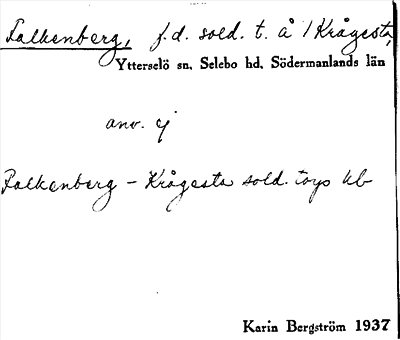 Falkenberg, f.d. sold. t. å /Krågesta,
Ytterselö sn. Selebo hd. Södermanlands län
anv. ej
Falkenberg – Krågesta sold. torp kb
Karin Bergström 1937